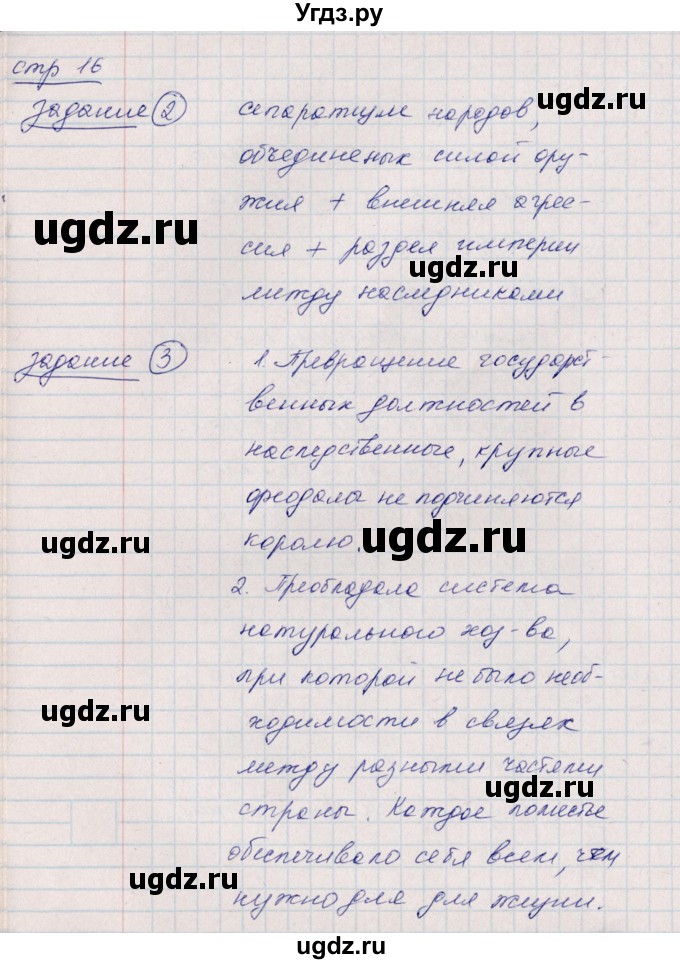 Угдз.ру
стр 16
задание 2 сепаратизм народов,
ugdz.ru
объединеных силой ору-
жия + внешняя агрес-
ugdz.ru
сия + раздел империи
ugdz.ru
между наследниками
задание 3 1. Превращение государст-
венных должностей в
наследственные, крупные
феодалы не подчиняются
ugdz.ru королю. ugdz.ru
2. Преобладала система
натурального хоз-ва,
при которой не было необ-
ugdz.ru ходимости в связях
между разными частями
ugdz.ru
страны. Каждое поместье
ugdz.ru обеспечивало себя всем, чем
нужно для для жизни.
ugdz.ru